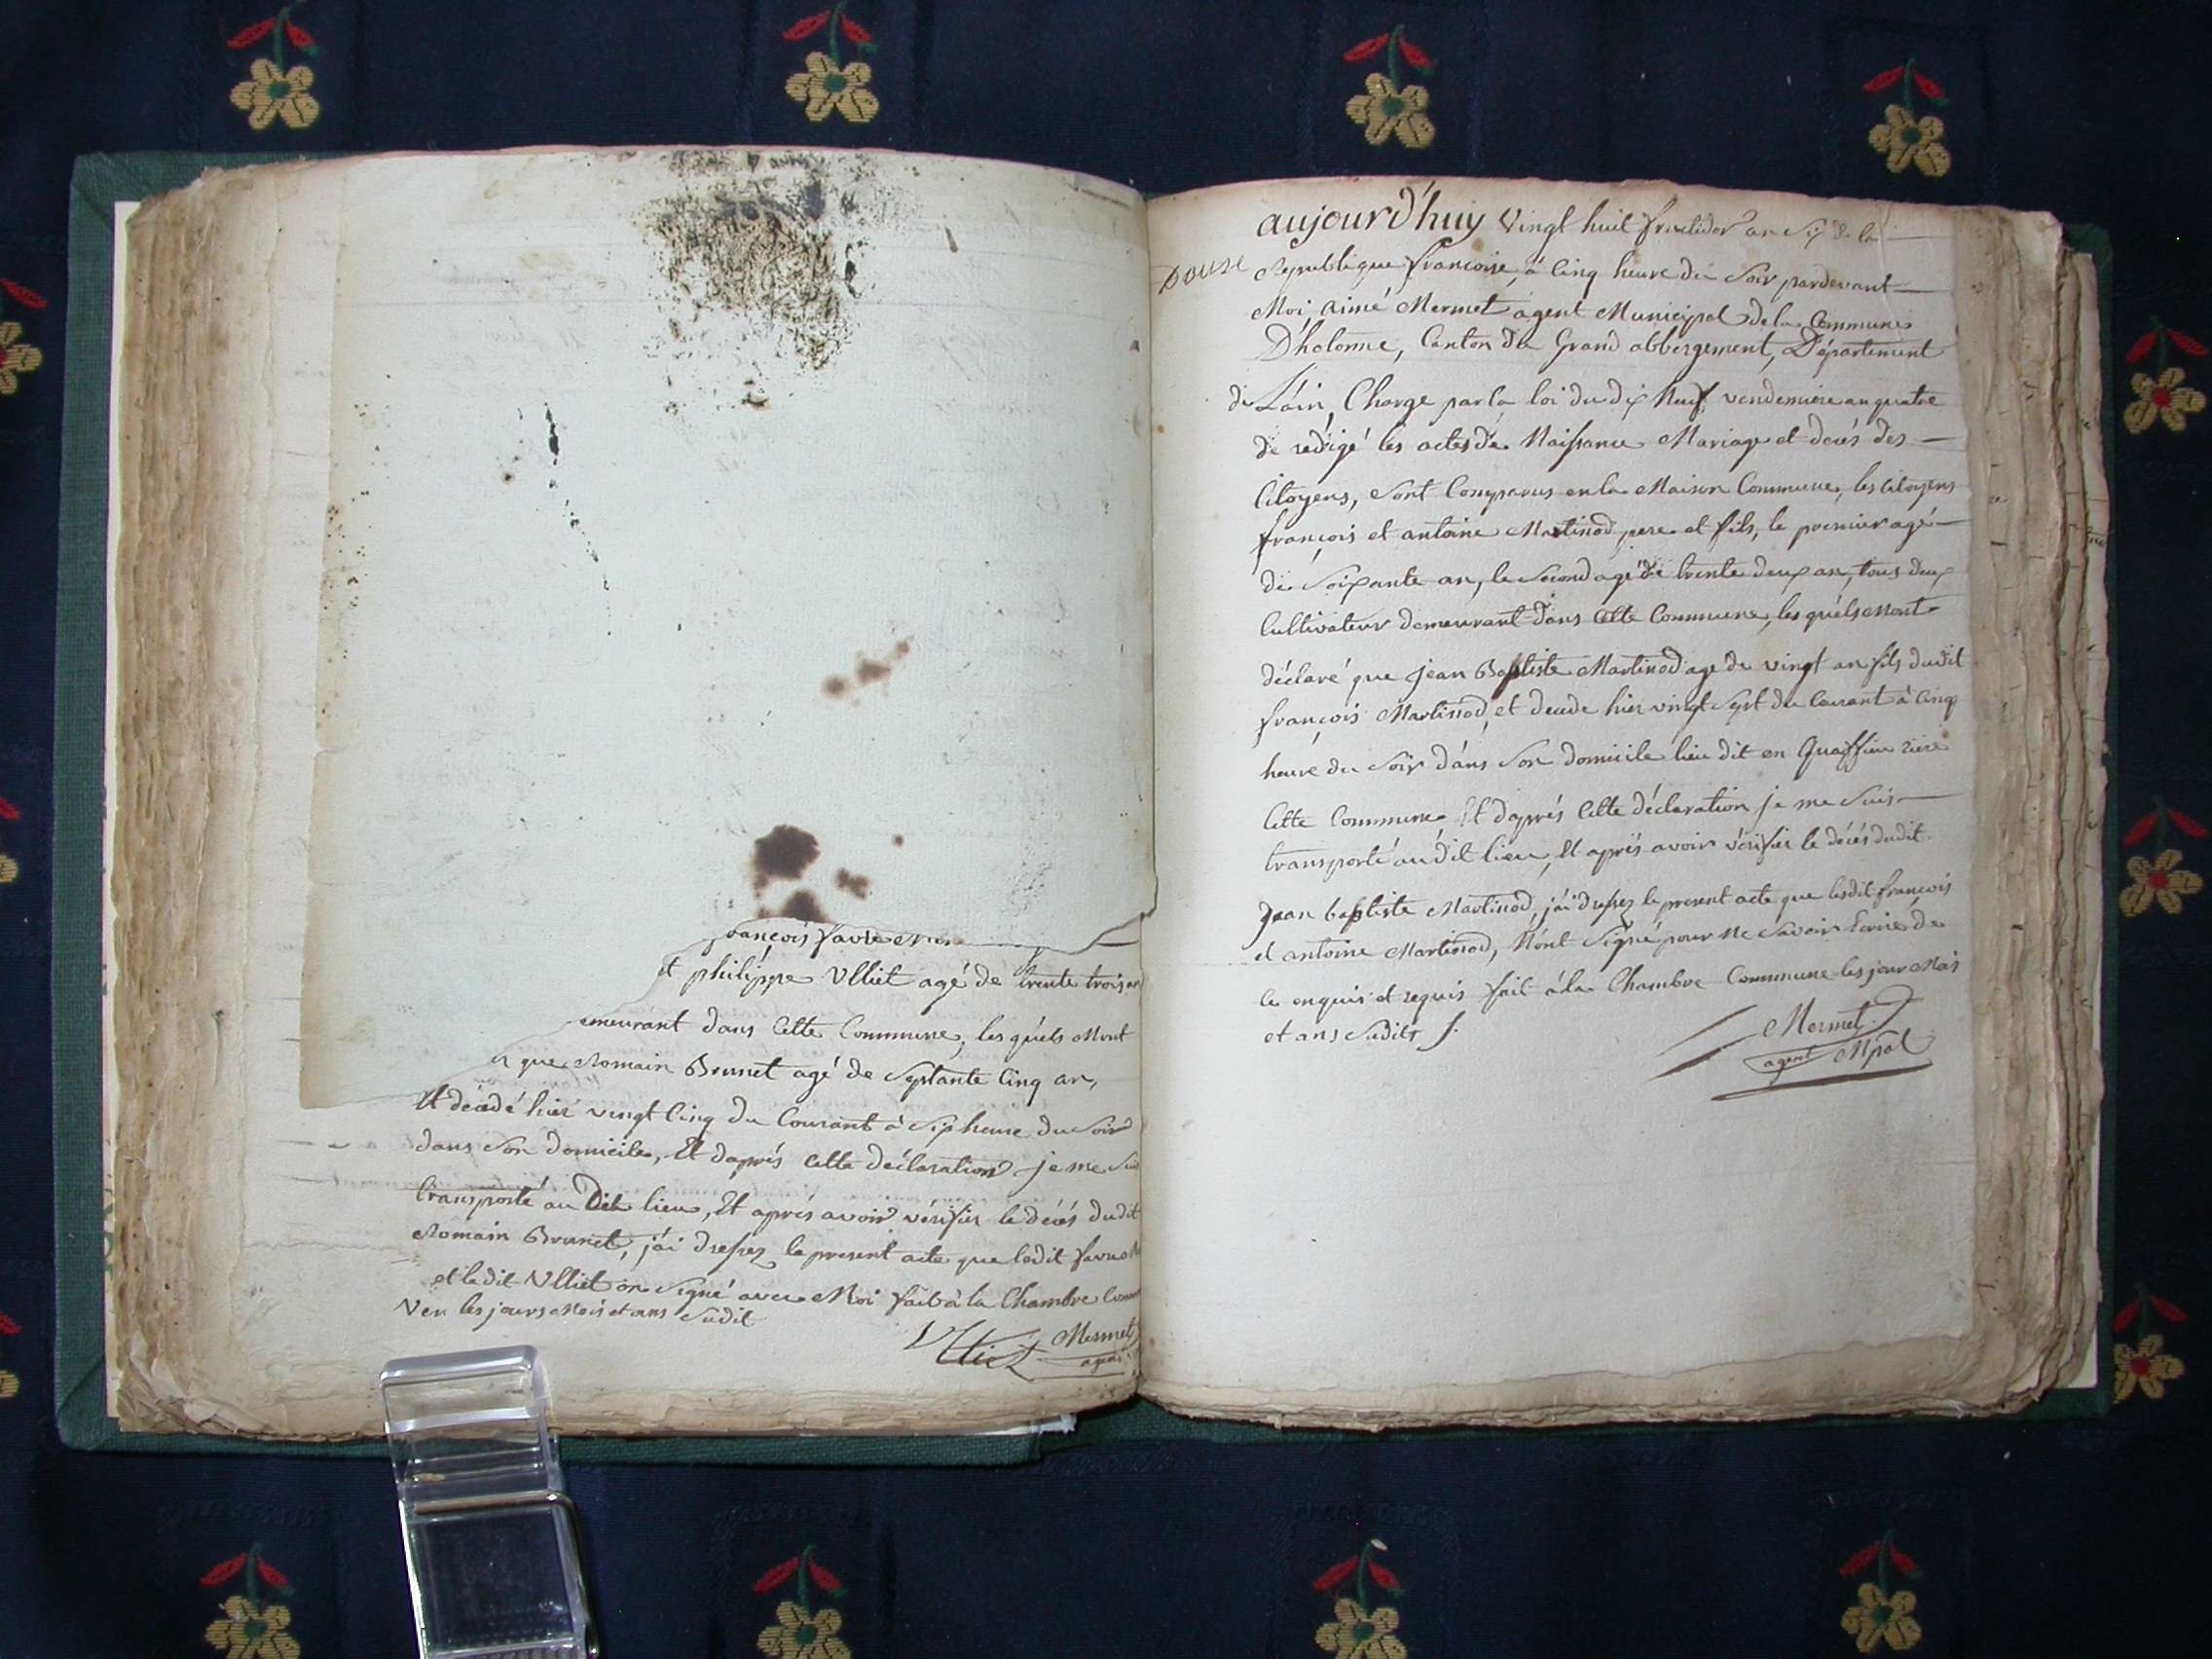 françois favre
et philippe Ulliet agé de trente trois an
emeurant dans Cette Commune, les quéls Mont
que Romain Brunet agé de Septante Cinq an,
Et décédé hier vingt Cinq du Courant à Six heure du Soir
dans Son domicile, Et daprés Cette déclaration je me Sui
transporté au Dit lieu, Et aprés avoir vérifier le décés dudit
Romain Brunet, j'ái dressez le present acte que ledit favre
et ledit Ulliet on Signé avec Moi fait à la Chambre Comm
les jours Mois et ans Sudit
Ulliet Mermet
agent
aujourd'huy Vingt huit fructidor an Six de la
Douse
Republique françoise, à Cinq heure du Soir pardevant
Moi aimé Mermet agent Municipal de la Commune
D'hotonne, Canton du Grand abbergement, Département
de Láin, Charge par la loi du dix Neuf vendemiere an quatre
de redigé les actes de Naissance Mariage et decés des
Citoyens, Sont Comparus en la Maison Commune, les Citoyens
françois et antoine Martinod pere et fils, le premier agé
de Soixante an, le Second agé de trente deux an, tous deux
Cultivateur demeurant dans Cette Commune, les quéls Mont
déclaré que jean Baptiste Martinod age de vingt an fils dudit
françois Martinod, et decede hier vingt Sept du Courant à Cinq
heure du Soir dáns Son domicile lieu dit en rière
Cette Commune Et daprés Cette déclaration je me Suis
transporté au dit lieu, Et aprés avoir vérifier le décés dudit
Jean baptiste Martinod, j'ái dressez le present acte que lesdit françois
et antoine Martinod, N'ont Signé pour Ne Savoir Ecrire de
Ce enquis et requis fait à la Chambre Commune les jour Mois
et ans Sudits
Mermet
agent Mpal